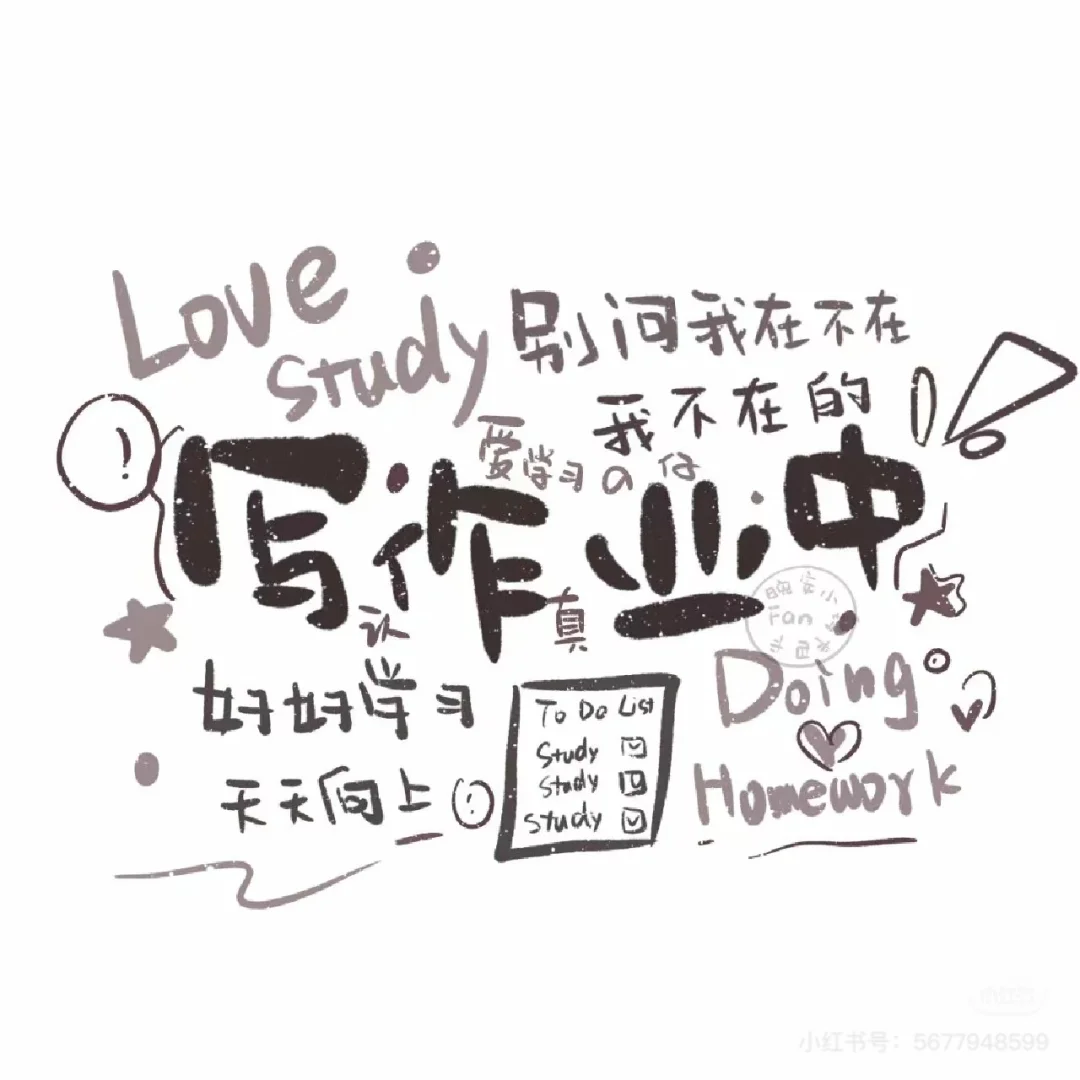 Love
Study
别问我在不在
我不在的
爱学习の仔
写作业中
认真
晚安小
Fan
好好学习
天天向上
To Do List
Study
Study
Study
Doing
Homework
小红书
小红书号：5677948599